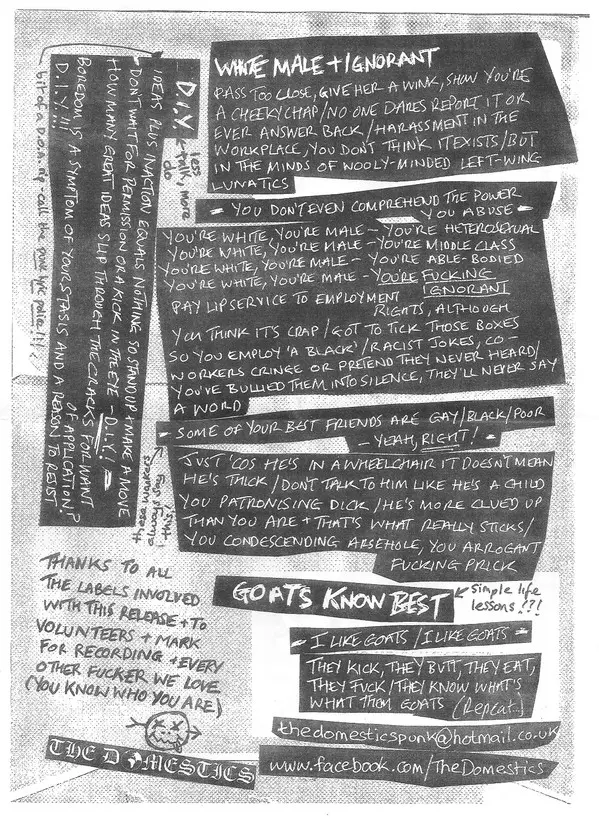 WHITE MALE + IGNORANT
PASS TOO CLOSE, GIVE HER A WINK, SHOW YOU'RE
A CHEEKY CHAP / NO ONE DARES REPORT IT OR
EVER ANSWER BACK / HARASSMENT IN THE
WORKPLACE, YOU DON'T THINK IT EXISTS / BUT
IN THE MINDS OF WOOLY-MINDED LEFT-WING
LUNATICS
- YOU DON'T EVEN COMPREHEND THE POWER
YOU ABUSE -
YOU'RE WHITE, YOU'RE MALE - YOU'RE HETEROSEXUAL
YOU'RE WHITE, YOU'RE MALE - YOU'RE MIDDLE CLASS
YOU'RE WHITE, YOU'RE MALE - YOU'RE ABLE-BODIED
YOU'RE WHITE, YOU'RE MALE - YOU'RE FUCKING
IGNORANT
PAY LIP SERVICE TO EMPLOYMENT
RIGHTS, ALTHOUGH
YOU THINK IT'S CRAP / GOT TO TICK THOSE BOXES
SO YOU EMPLOY 'A BLACK' / RACIST JOKES, CO-
WORKERS CRINGE OR PRETEND THEY NEVER HEARD /
YOU'VE BULLIED THEM INTO SILENCE, THEY'LL NEVER SAY
A WORD
- SOME OF YOUR BEST FRIENDS ARE GAY/BLACK/POOR
- YEAH, RIGHT! -
JUST 'COS HE'S IN A WHEELCHAIR IT DOESN'T MEAN
HE'S THICK / DON'T TALK TO HIM LIKE HE'S A CHILD
YOU PATRONISING DICK / HE'S MORE CLUED UP
THAN YOU ARE + THAT'S WHAT REALLY STICKS /
YOU CONDESCENDING ARSEHOLE, YOU ARROGANT
FUCKING PRICK
D.I.Y.
less
talk, more
do
IDEAS PLUS INACTION EQUALS NOTHING SO STAND UP + MAKE A MOVE
DON'T WAIT FOR PERMISSION OR A KICK IN THE EYE - D.I.Y.! -
HOW MANY GREAT IDEAS SLIP THROUGH THE CRACKS FOR WANT
OF APPLICATION?
BOREDOM IS A SYMPTOM OF YOUR STASIS AND A REASON TO RESIST
D.I.Y.!!!
bit of a D.O.A. rip - call the punk lyric police!!!
those wankers
always say
this
GOATS KNOW BEST
simple life
lessons!?!
- I LIKE GOATS / I LIKE GOATS -
THEY KICK, THEY BUTT, THEY EAT,
THEY FUCK / THEY KNOW WHAT'S
WHAT THEM GOATS (Repeat..)
THANKS TO ALL
THE LABELS INVOLVED
WITH THIS RELEASE + TO
VOLUNTEERS + MARK
FOR RECORDING + EVERY
OTHER FUCKER WE LOVE
(YOU KNOW WHO YOU ARE)
THE DOMESTICS
thedomesticspunk@hotmail.co.uk
www.facebook.com/TheDomestics